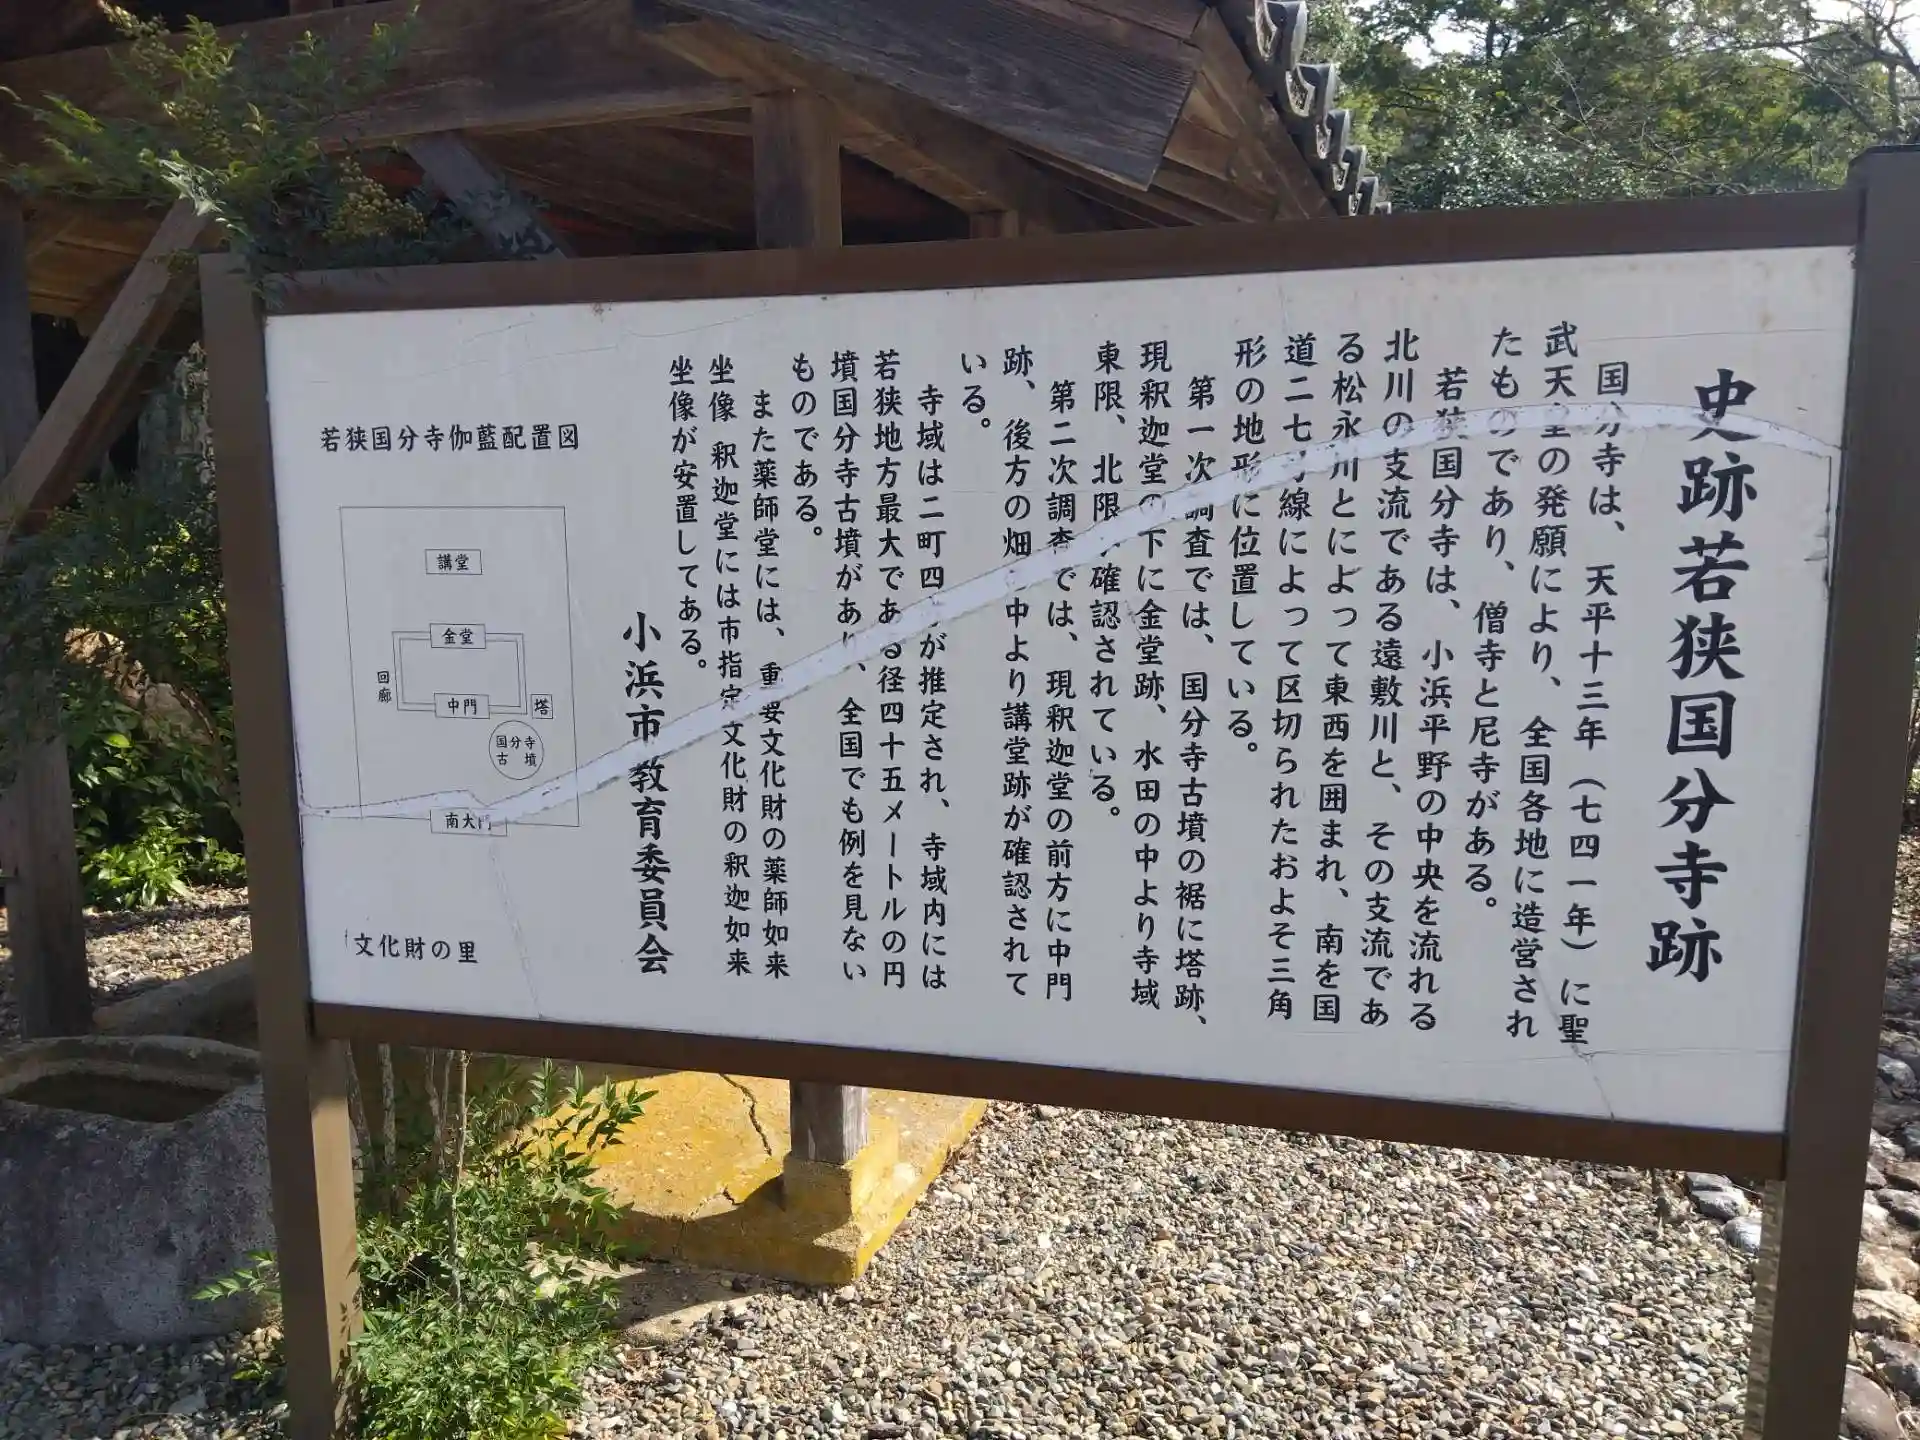 史跡若狭国分寺跡
国分寺は、天平十三年（七四一年）に聖
武天皇の発願により、全国各地に造営され
たものであり、僧寺と尼寺がある。
若狭国分寺は、小浜平野の中央を流れる
北川の支流である遠敷川と、その支流であ
る松永川とによって東西を囲まれ、南を国
道二七号線によって区切られたおよそ三角
形の地形に位置している。
第一次調査では、国分寺古墳の裾に塔跡、
現釈迦堂の下に金堂跡、水田の中より寺域
東限、北限が確認されている。
第二次調査では、現釈迦堂の前方に中門
跡、後方の畑の中より講堂跡が確認されて
いる。
寺域は二町四方が推定され、寺域内には
若狭地方最大である径四十五メートルの円
墳国分寺古墳があり、全国でも例を見ない
ものである。
また薬師堂には、重要文化財の薬師如来
坐像 釈迦堂には市指定文化財の釈迦如来
坐像が安置してある。
小浜市教育委員会
若狭国分寺伽藍配置図
講堂
金堂
回廊
中門
塔
国分寺
古墳
南大門
文化財の里